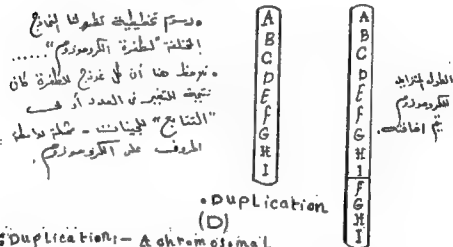 رسم تخطيطية تظهر لنا النماذج
المختلفة "لطفرة الكروموزوم" ......
• نلاحظ هنا أن كل نموذج للطفرة كان
نتيجة التغير فى العدد أو فى
"التتابع" للجينات - ممثلة بواسطة
الحروف على الكروموزوم.
A
B
C
D
E
F
G
H
I
A
B
C
D
E
F
G
H
I
F
G
H
I
الطول المتزايد
للكروموزوم
يتم اضافته.
• Duplication
(D)
Duplication:- A chromosomal